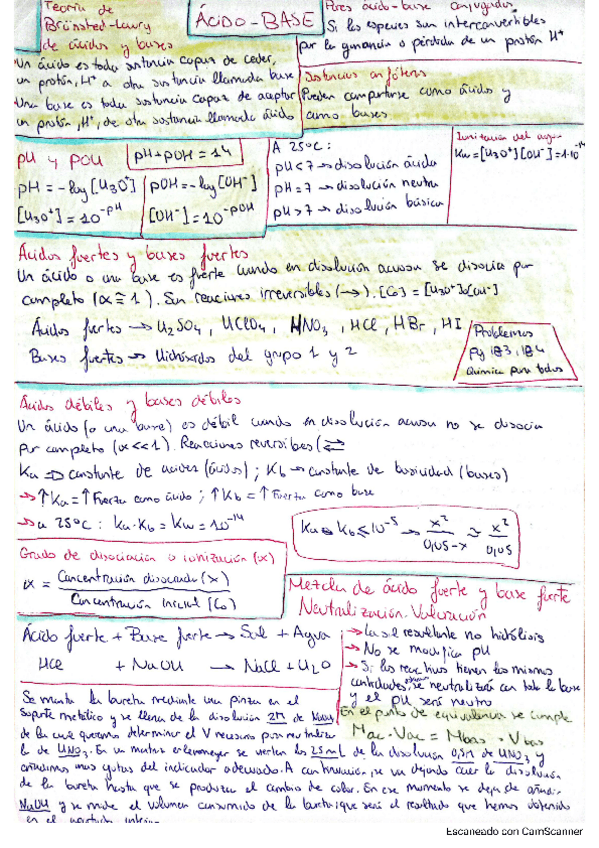 Teoría de
Brönsted-Lowry
de ácidos y bases
ÁCIDO-BASE
Pares ácido-base conjugados
Si las especies son interconvertibles
por la ganancia o pérdida de un protón H⁺
Un ácido es toda sustancia capaz de ceder,
un protón, H⁺ a otra sustancia llamada base
Una base es toda sustancia capaz de aceptar
un protón, H⁺, de otra sustancia llamada ácido
Sustancias anfóteras
Pueden comportarse como ácidos y
como bases
pH y pOH
pH+pOH=14
pH=-log[H₃O⁺]
[H₃O⁺]=10^-pH
pOH=-log[OH⁻]
[OH⁻]=10^-pOH
A 25ºC:
pH<7→disolución ácida
pH=7→disolución neutra
pH>7→disolución básica
Ionización del agua
Kw=[H₃O⁺][OH⁻]=1·10⁻¹⁴
Ácidos fuertes y bases fuertes
Un ácido o una base es fuerte cuando en disolución acuosa se disocia por
completo (α≅1). Son reaciones irreversibles(→). [Co]=[H₃O⁺]o[OH⁻]
Ácidos fuertes→H₂SO₄, HClO₄, HNO₃, HCl, HBr, HI
Bases fuertes→Hidróxidos del grupo 1 y 2
Problemas
Pg 183, 184
Química para todos
Ácidos débiles y bases débiles
Un ácido (o una base) es débil cuando en disolución acuosa no se disocia
por completo (α<<1). Reaciones reversibles(⇄
Ka⇒constante de acidez (ácidos); Kb→constante de basicidad (bases)
→↑Ka=↑Fuerza como ácido; ↑Kb=↑Fuerza como base
→a 25ºC: Ka·Kb=Kw=10⁻¹⁴
Ka o Kb≤10⁻⁵→ x²/0,05-x ≈ x²/0,05
Grado de disociación o ionización (α)
α = Concentración disociada (x)/Concentración inicial [Co]
Mezcla de ácido fuerte y base fuerte
Neutralización. Valoración
Ácido fuerte + Base fuerte→Sal + Agua
HCl + NaOH → NaCl + H₂O
→La sal resultante no hidrólisis
→No se modifica pH
→Si los reactivos tienen las mismas
cantidades, se neutralizará con toda la base
y el pH será neutro
En el punto de equivalencia se cumple
Mac·Vac = Mbas·Vbas
Se monta la bureta mediante una pinza en el
soporte metálico y se llena de la disolución 2M de NaOH
de la cual queremos determinar el V necesario para neutralizar
la de HNO₃. En un matraz erlenmeyer se vierten los 25mL de la disolución 0,5M de HNO₃ y
añadimos unas gotas del indicador adecuado. A continuación, se va dejando caer la disolución
de la bureta hasta que se produzca el cambio de color. En ese momento se deja de añadir
NaOH y se mide el volumen consumido de la bureta que será el resultado que hemos obtenido
en el apartado
Escaneado con CamScanner